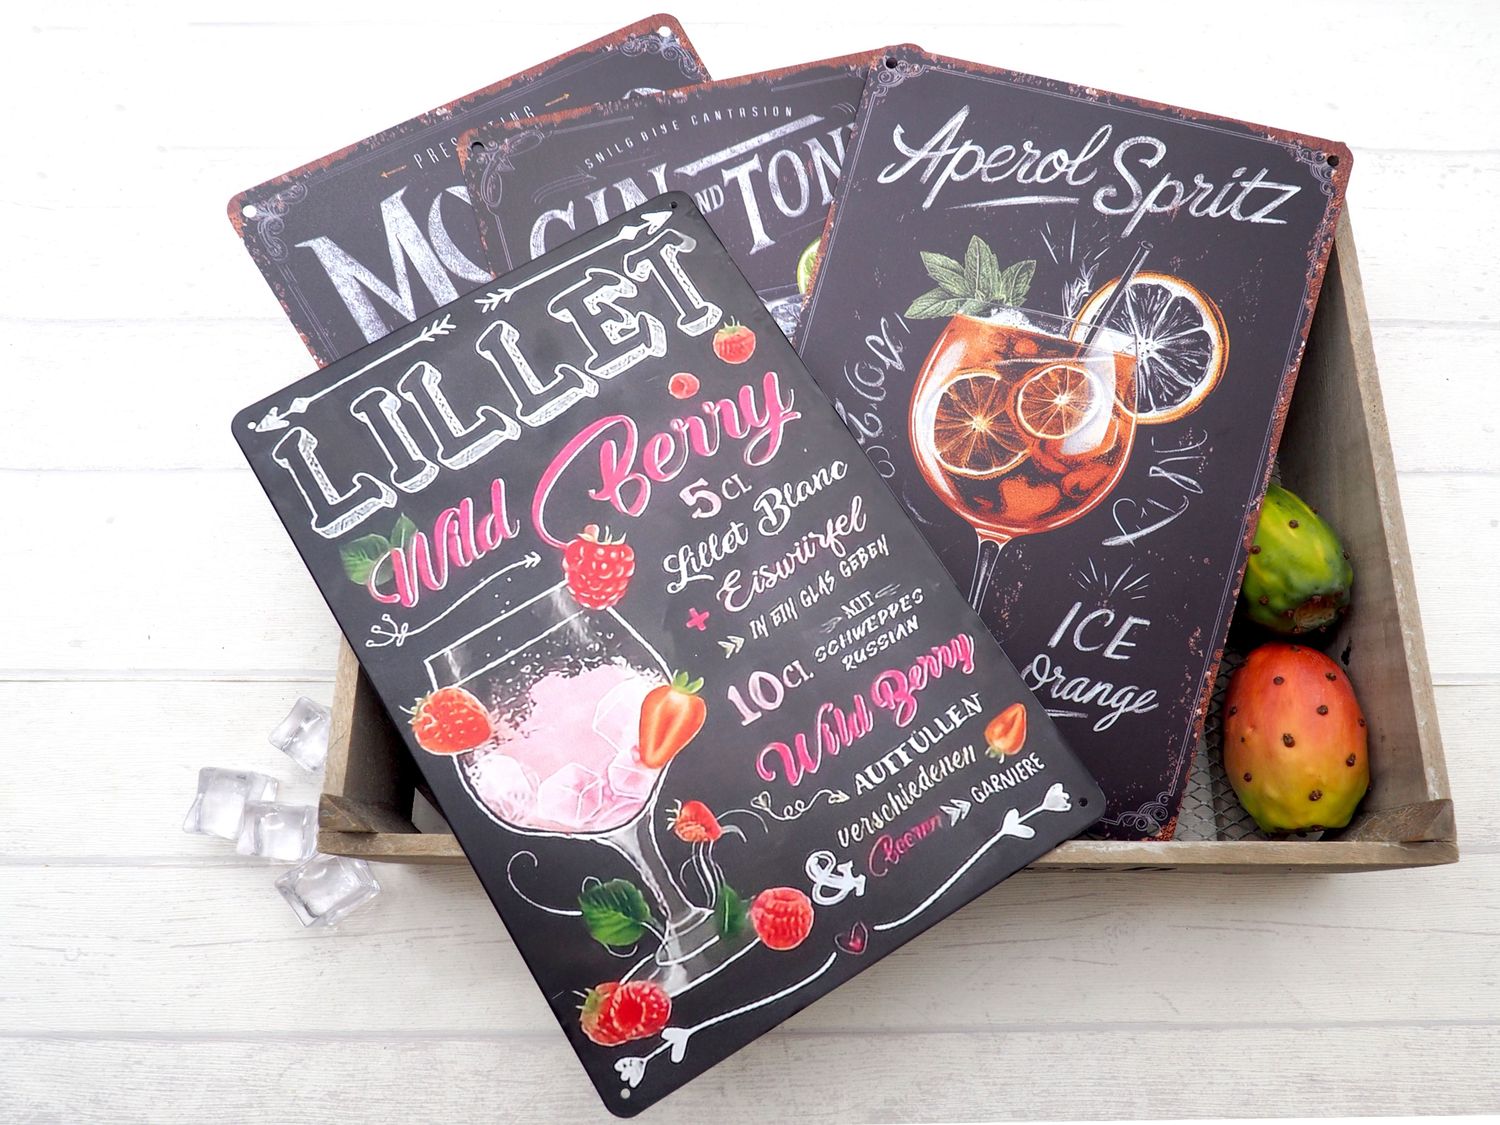 PRES
MO
SNILG DIJE CANTRSION
GIN AND TON
Aperol Spritz
ICE
Orange
LILLET
Wild Berry
5 CL
Lillet Blanc
+ Eiswürfel
IN EIN GLAS GEBEN
10 CL MIT
SCHWEPPES
RUSSIAN
Wild Berry
AUFFÜLLEN
& verschiedenen
Beeren GARNIERE